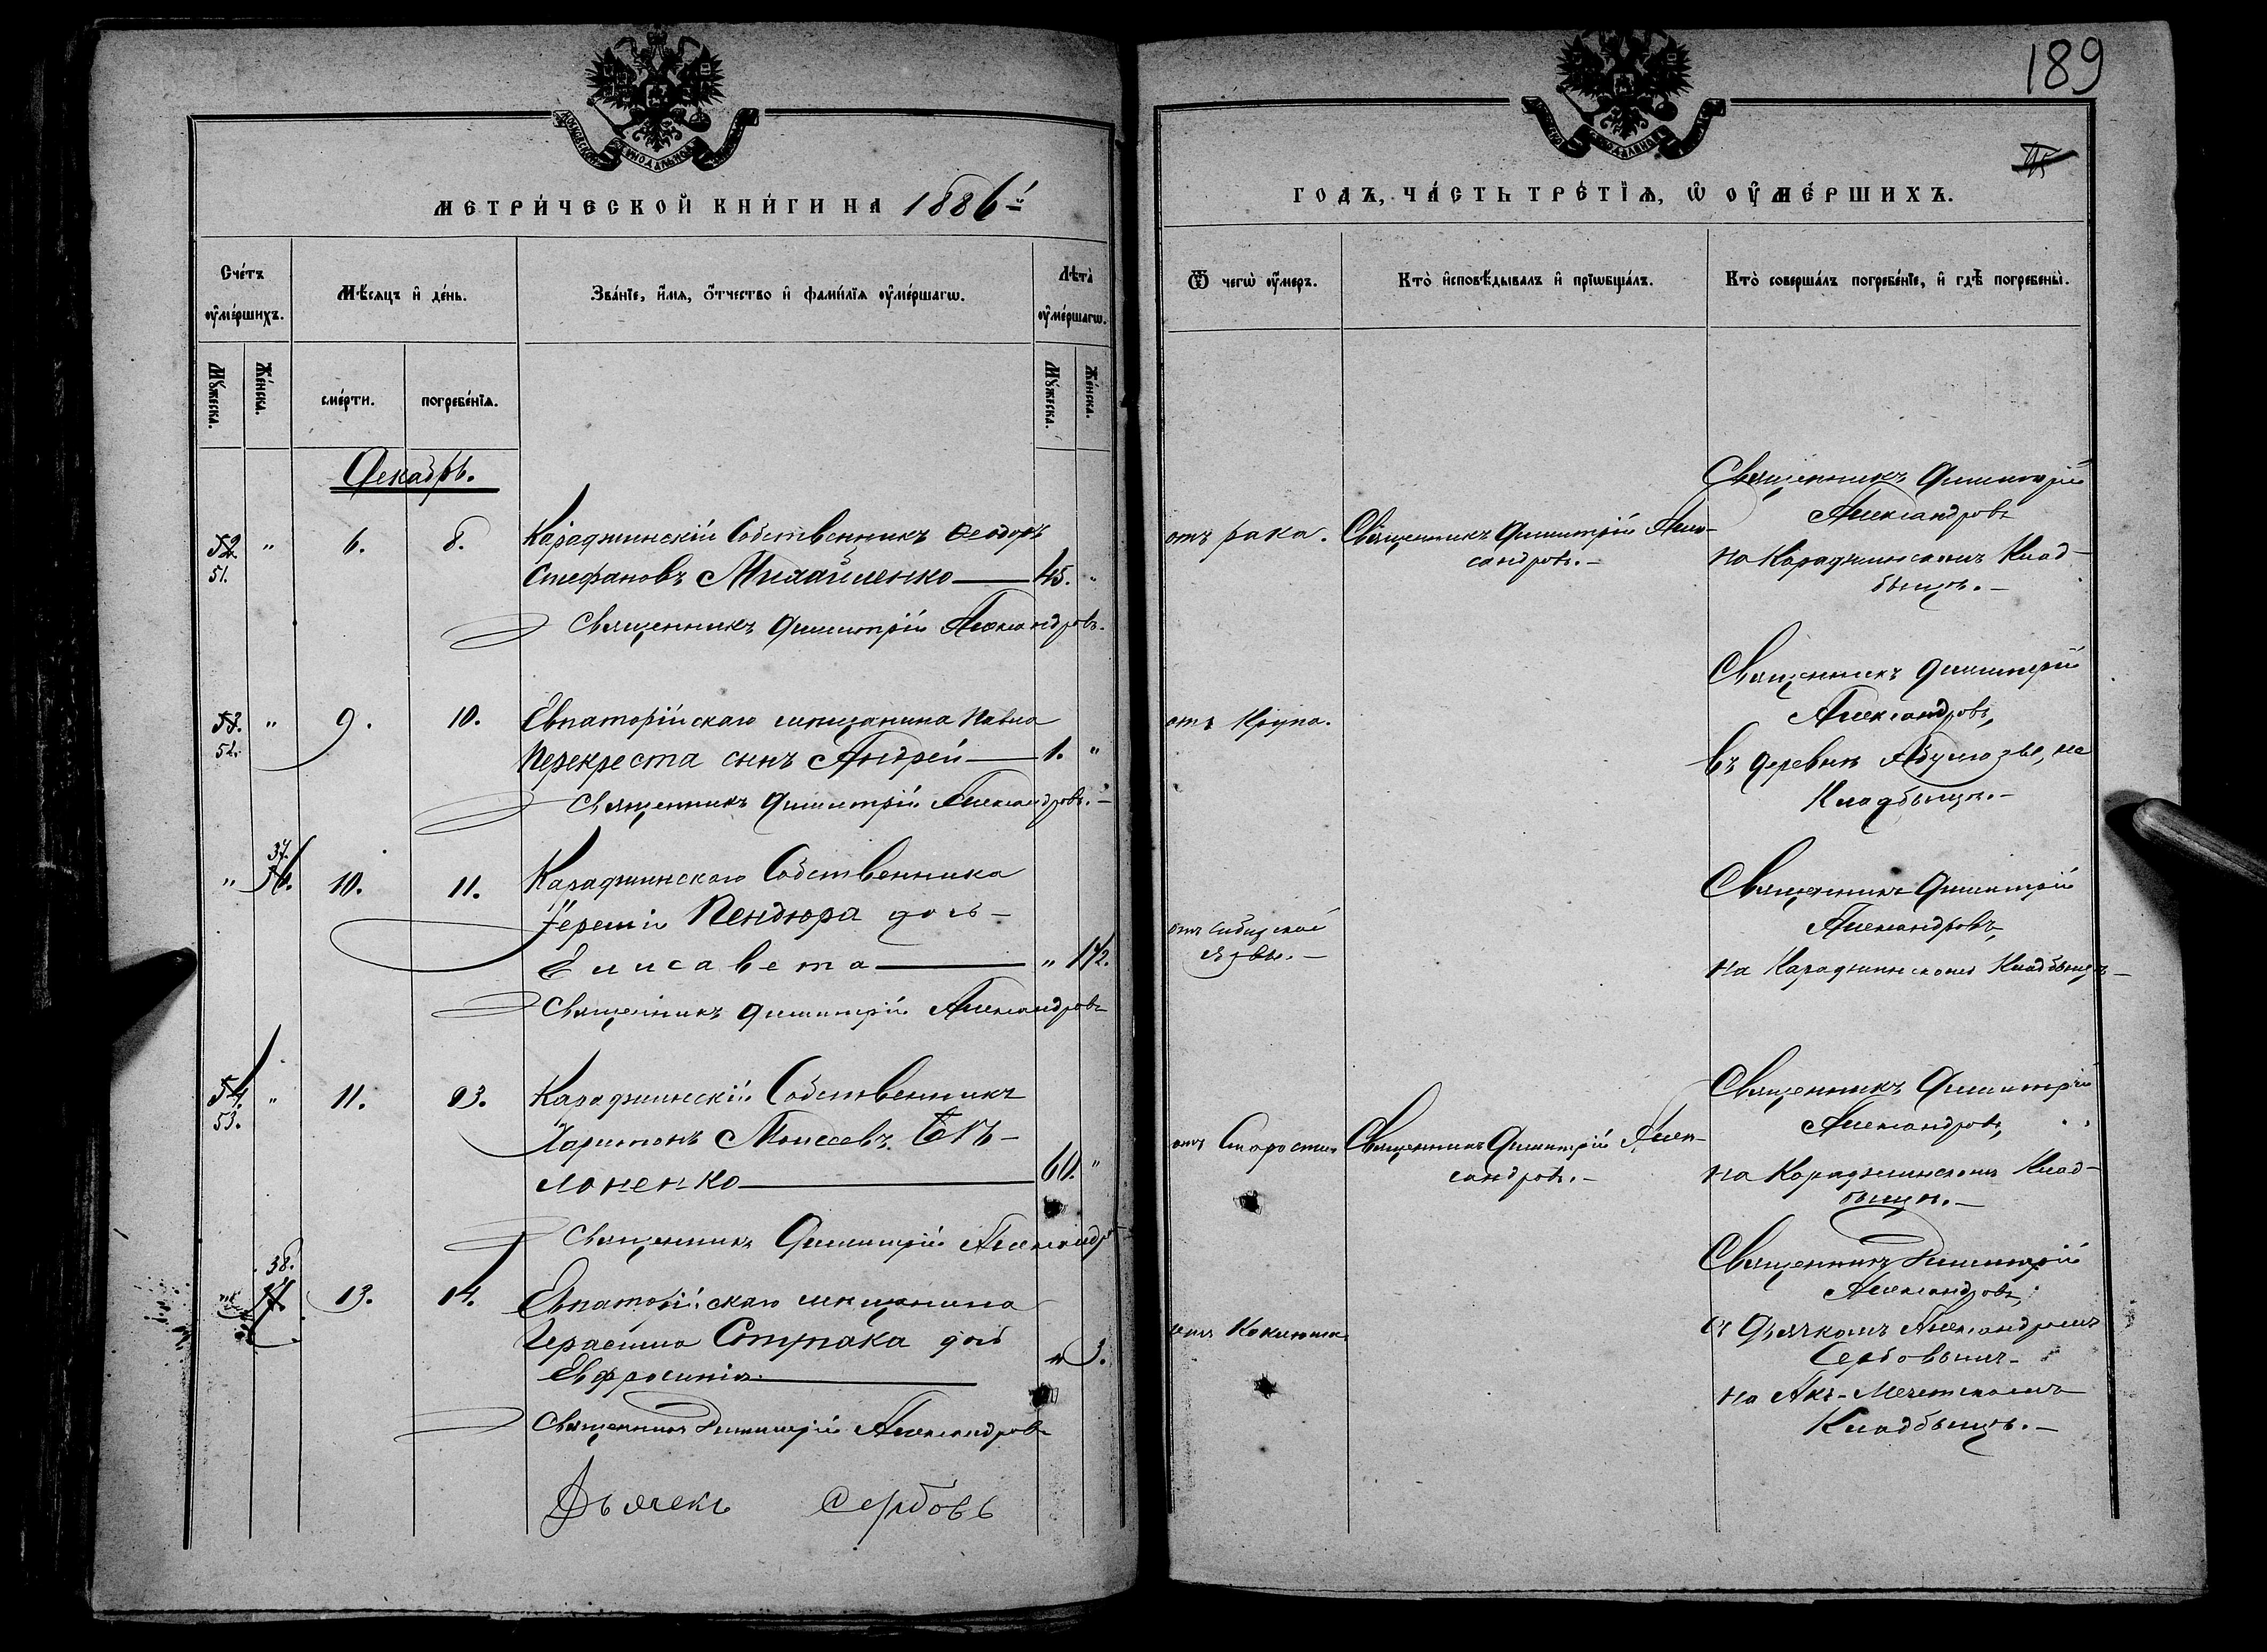 189
МЕТРИ́ЧЕСКОЙ КНИ́ГИ НА 1886й
ГОДЪ, ЧА́СТЬ ТРЕ́ТІѦ, Ѡ ОУ҆МЕ́РШИХЪ.
Сче́тъ оу҆ме́ршихъ.
Мѣ́сѧцъ и҆ де́нь.
Зва́нїе, и҆́мѧ, ѻ҆́тчество и҆ фами́лїѧ оу҆ме́ршагѡ.
Лѣта̀ оу҆ме́ршагѡ.
Ѿ чегѡ̀ оу҆́меръ.
Кто̀ и҆сповѣ́дывалъ и҆ прїѡбща́лъ.
Кто̀ соверша́лъ погребе́нїе, и҆ гдѣ̀ погребены̀.
Мꙋ́жеска.
Же́нска.
сме́рти.
погребе́нїѧ.
Мꙋ́жеска.
Же́нска.
Декабрь.
52. " 6. 8. Караджинскій Собственникъ Ѳеодоръ
51. Стефановъ Михайленко — 45. "
Священникъ Димитрій Александровъ.
отъ рака.
Священникъ Димитрій Алек-
сандровъ. —
Священникъ Димитрій
Александровъ
на Караджинскомъ Клад-
бищѣ. —
53. " 9. 10. Евпаторійскаго мѣщанина Павла
52. Перекреста сынъ Андрей — 1. "
Священникъ Димитрій Александровъ. —
отъ Крупа.
Священникъ Димитрій
Александровъ,
въ деревнѣ на
Кладбищѣ. —
37.
" 36. 10. 11. Караджинскаго Собственника
Іереміи Пендюра дочь —
Елисавета — " 1 1/2.
Священникъ Димитрій Александровъ
отъ Сибирской
язвы. —
Священникъ Димитрій
Александровъ,
на Караджинскомъ Кладбищѣ —
54. " 11. 13. Караджинскій Собственникъ
53. Харитонъ Моисеевъ Бѣ-
лоненко — 60. "
Священникъ Димитрій Александр
отъ Старости
Священникъ Димитрій Алек-
сандровъ. —
Священникъ Димитрій
Александровъ,
на Караджинскомъ Клад-
бищѣ. —
38.
37. 13. 14. Евпаторійскаго мѣщанина
Герасима Стрпака дочь
Евфросинія — " 3.
Священникъ Димитрій Александровъ
отъ Коклюша
Священникъ Димитрій
Александровъ,
съ Дьячкомъ Александромъ
Сербовымъ —
на Акъ-Мечетскомъ
Кладбищѣ. —
Дьячекъ Сербовъ